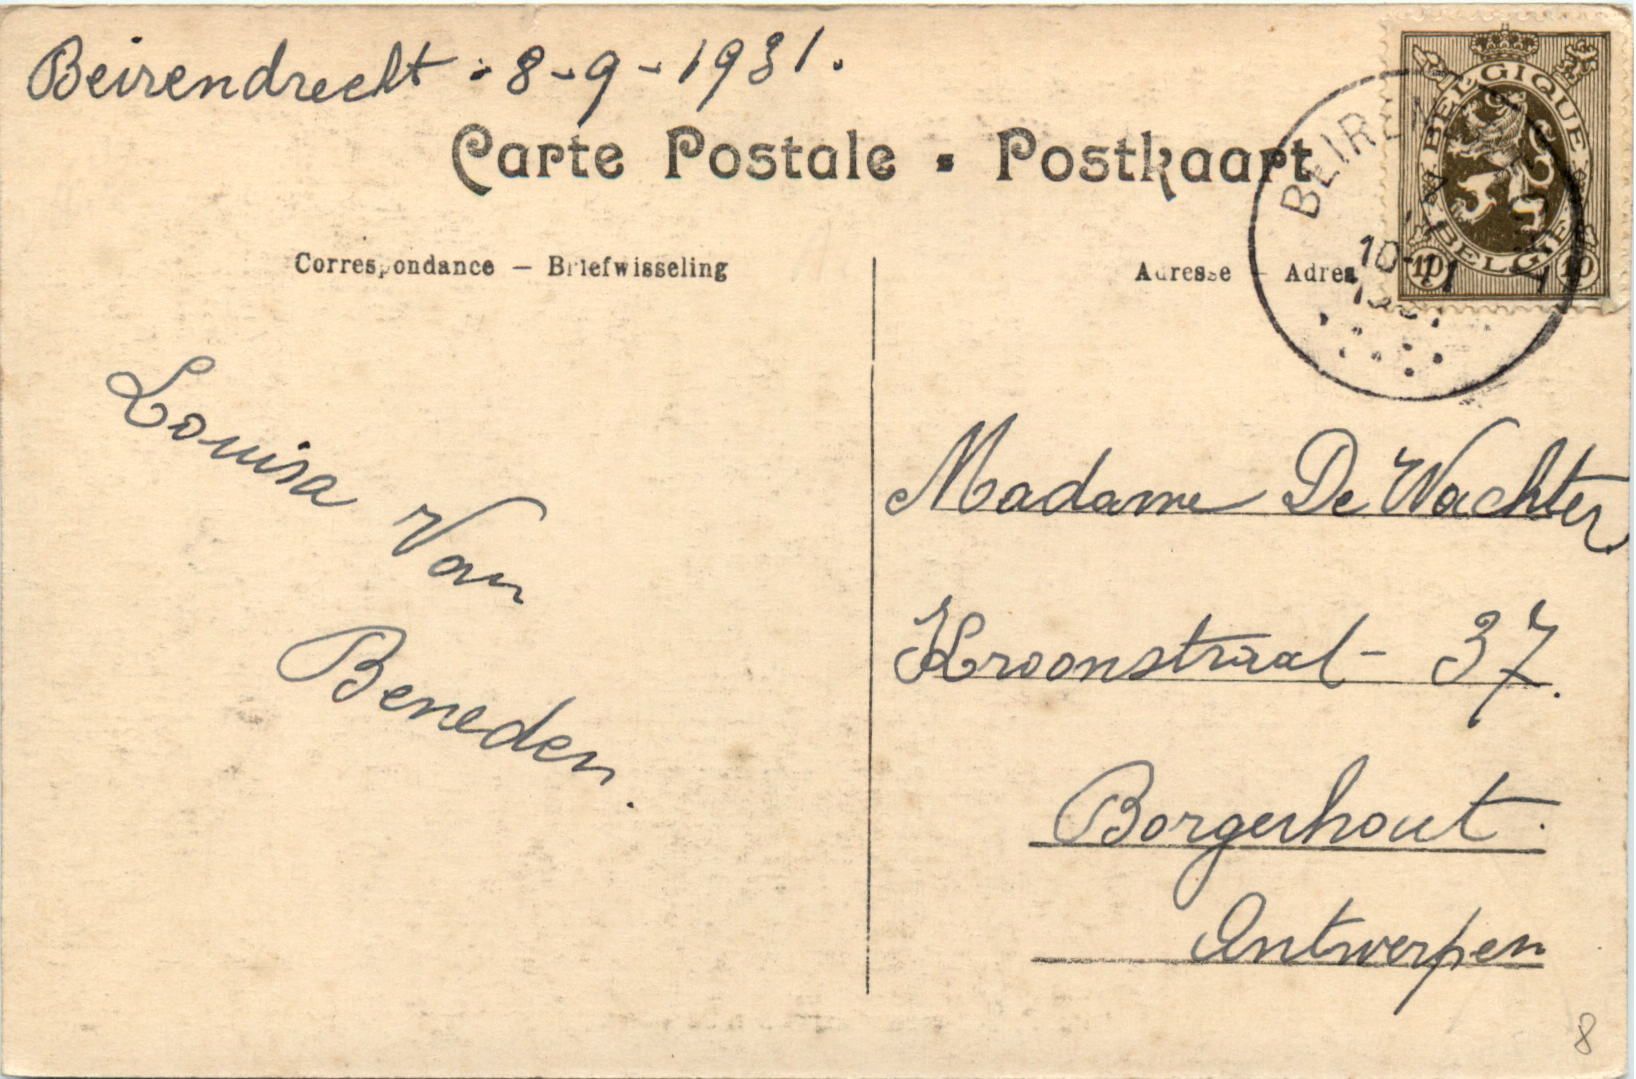 Beirendrecht - 8-9-1931.
Carte Postale - Postkaart
Correspondance — Briefwisseling
Adresse — Adres
BELGIQUE
BELGIE
10 10
BEIREN
10-11
Louisa Van
Beneden.
Madame De Wachter
Kroonstraat - 37.
Borgerhout.
Antwerpen
8